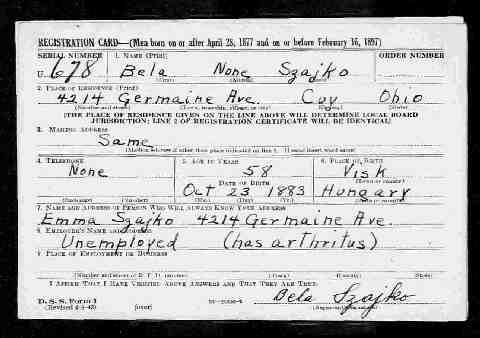 REGISTRATION CARD—(Men born on or after April 28, 1877 and on or before February 16, 1897)
SERIAL NUMBER 1. NAME (Print) ORDER NUMBER
U. 678 Bela None Szajko
(First) (Middle) (Last)
2. PLACE OF RESIDENCE (Print)
4214 Germaine Ave. Cuy Ohio
(Number and street) (Town, township, village, or city) (County) (State)
[THE PLACE OF RESIDENCE GIVEN ON THE LINE ABOVE WILL DETERMINE LOCAL BOARD
JURISDICTION; LINE 2 OF REGISTRATION CERTIFICATE WILL BE IDENTICAL]
3. MAILING ADDRESS
Same
(Mailing address if other than place indicated on line 2. If same insert word same)
4. TELEPHONE 5. AGE IN YEARS 6. PLACE OF BIRTH
None 58 Visk
DATE OF BIRTH (Town or county)
Oct 23 1883 Hungary
(Exchange) (Number) (Mo.) (Day) (Yr.) (State or country)
7. NAME AND ADDRESS OF PERSON WHO WILL ALWAYS KNOW YOUR ADDRESS
Emma Szajko 4214 Germaine Ave.
8. EMPLOYER'S NAME AND ADDRESS
Unemployed (has arthritus)
9. PLACE OF EMPLOYMENT OR BUSINESS
(Number and street or R. F. D. number) (Town) (County) (State)
I AFFIRM THAT I HAVE VERIFIED ABOVE ANSWERS AND THAT THEY ARE TRUE.
D. S. S. Form 1 Bela Szajko
(Revised 4-1-42) (over) (Registrant's signature)